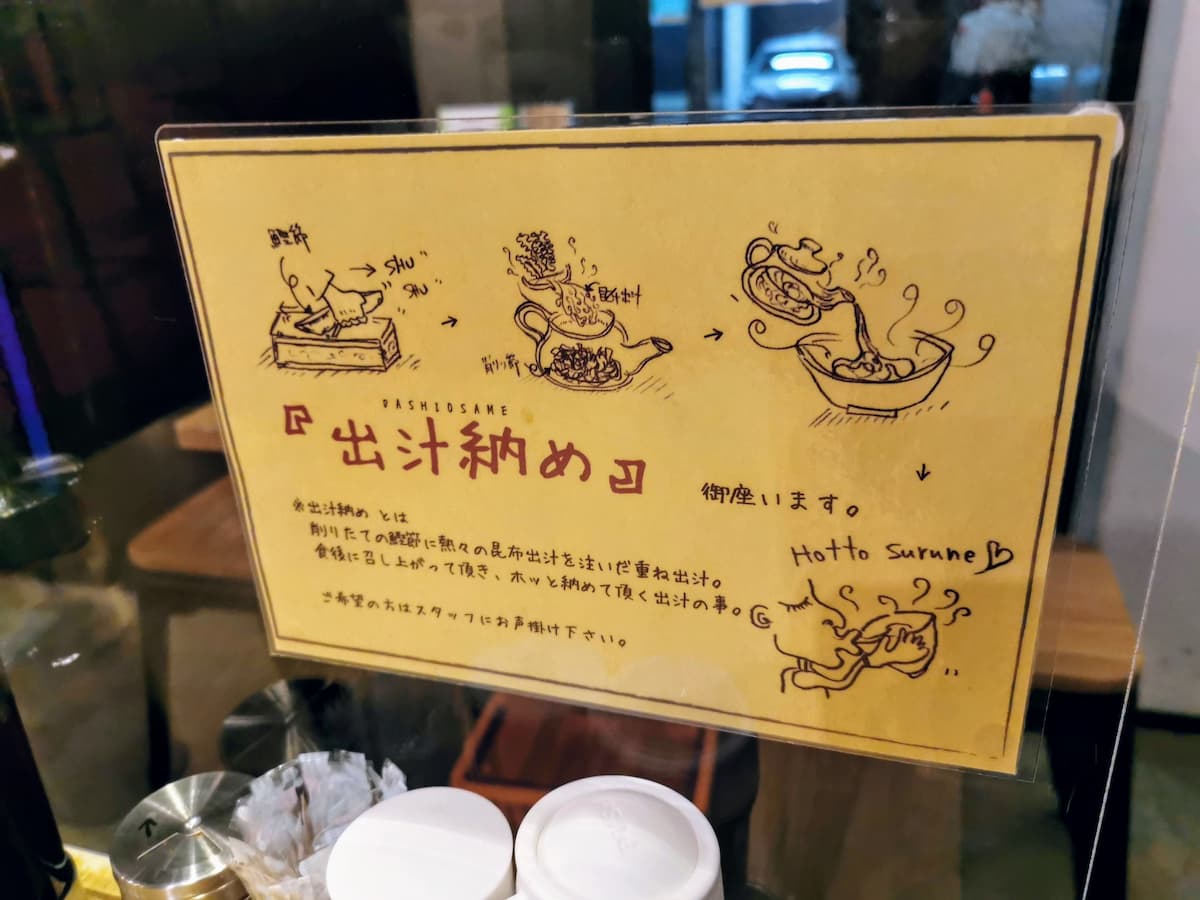 鰹節
SHU
SHU
昆布出汁
削り節
DASHIOSAME
『出汁納め』
御座います。
※出汁納め とは
削りたての鰹節に熱々の昆布出汁を注いだ重ね出汁。
食後に召し上がって頂き、ホッと納めて頂く出汁の事。
ご希望の方はスタッフにお声掛け下さい。
Hotto surune